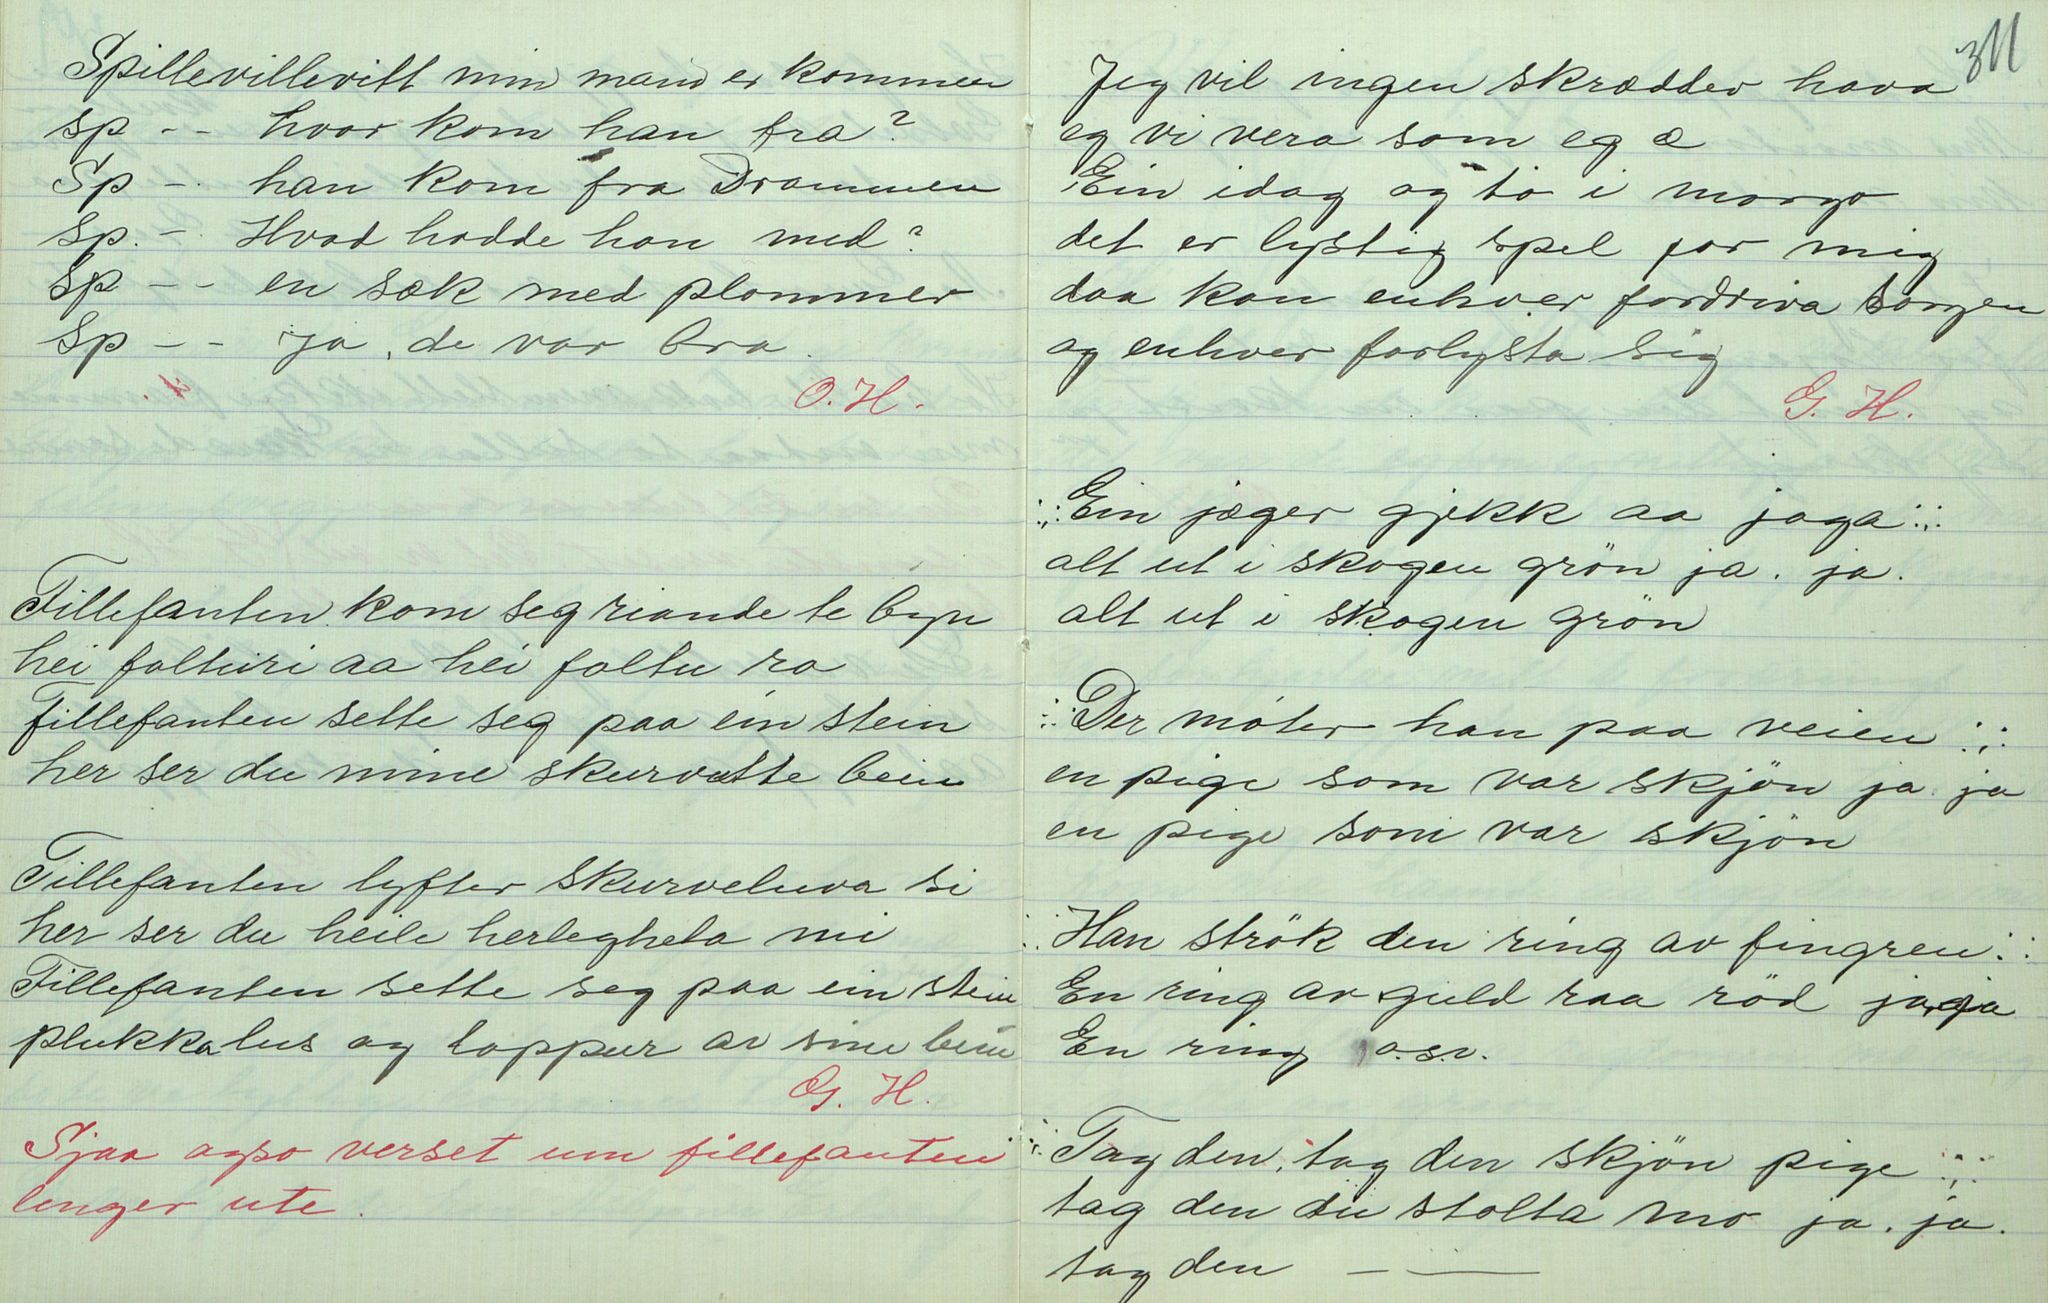 Spillevillevitt min mand er kommen
Sp - - hvor kom han fra?
Sp - - han kom fra Drammen
Sp. - Hvad hadde han med?
Sp - - en sæk med plommer
Sp - - Ja, de var bra.
O. H.
Fillefanten kom seg riande te byn
hei falturi aa hei faltu ra
Fillefanten sette seg paa ein stein
her ser du mine skurvutte bein
Fillefanten lyfter skurveluva si
her ser du heile herlegheta mi
Fillefanten sette seg paa ein stein
plukka lus og loppur av sine bein
G. H.
Sjaa ogso verset um fillefanten
lenger ute.
311
Jeg vil ingen skrædder hava
eg vi vera som eg æ
Ein idag og to i morgo
det er lystig spel for mig
daa kan enhver fordriva sorgen
og enhver forlysta sig
G. H.
:,: Ein jæger gjekk aa jaga :,:
alt ut i skogen grön ja. ja.
alt ut i skogen grön
:,: Der møter han paa veien :,:
en pige som var skjön ja ja
en pige som var skjön
:,: Han strök den ring av fingren :,:
En ring av guld saa röd ja, ja
En ring o.s.v.
:,: Tag den, tag den skjön pige :,:
tag den du stolta mø ja. ja.
tag den - —